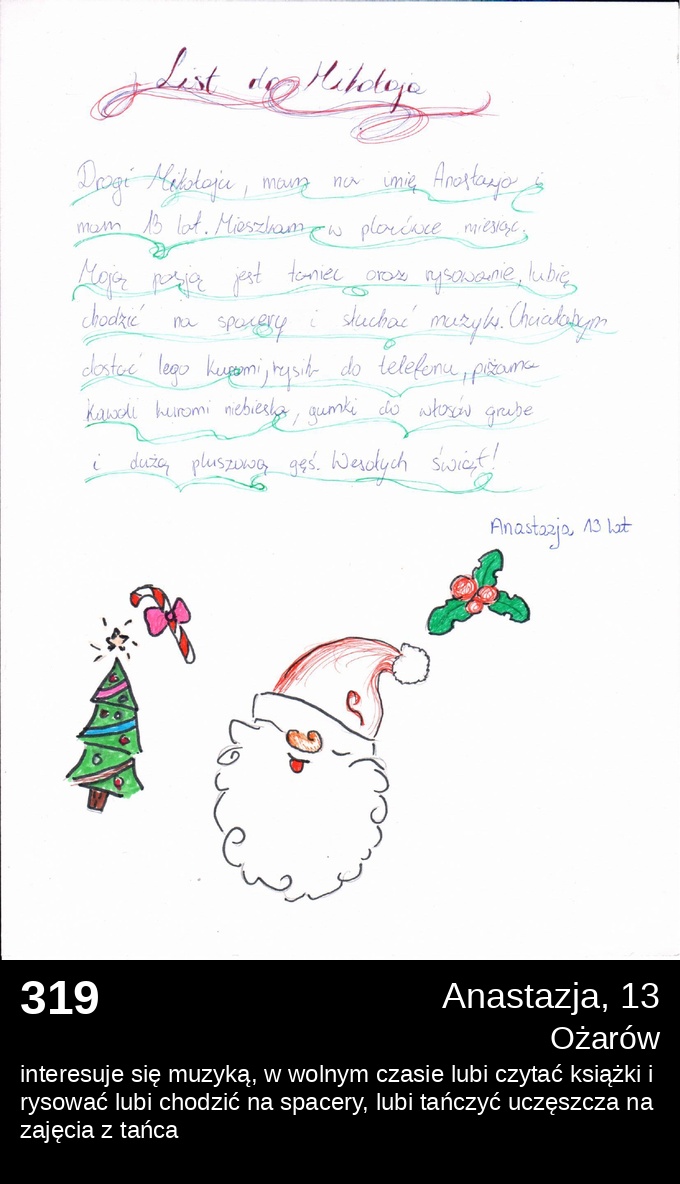 List do Mikołaja
Drogi Mikołaju, mam na imię Anastazja i
mam 13 lat. Mieszkam w placówce miesiąc.
Moją pasją jest taniec oraz rysowanie, lubię
chodzić na spacery i słuchać muzyki. Chciałabym
dostać lego kuromi, rysik do telefonu, piżama
kawaii kuromi niebieska, gumki do włosów grube
i dużą pluszową gęś. Wesołych świąt!
Anastazja, 13 lat
319
Anastazja, 13
Ożarów
interesuje się muzyką, w wolnym czasie lubi czytać książki i
rysować lubi chodzić na spacery, lubi tańczyć uczęszcza na
zajęcia z tańca